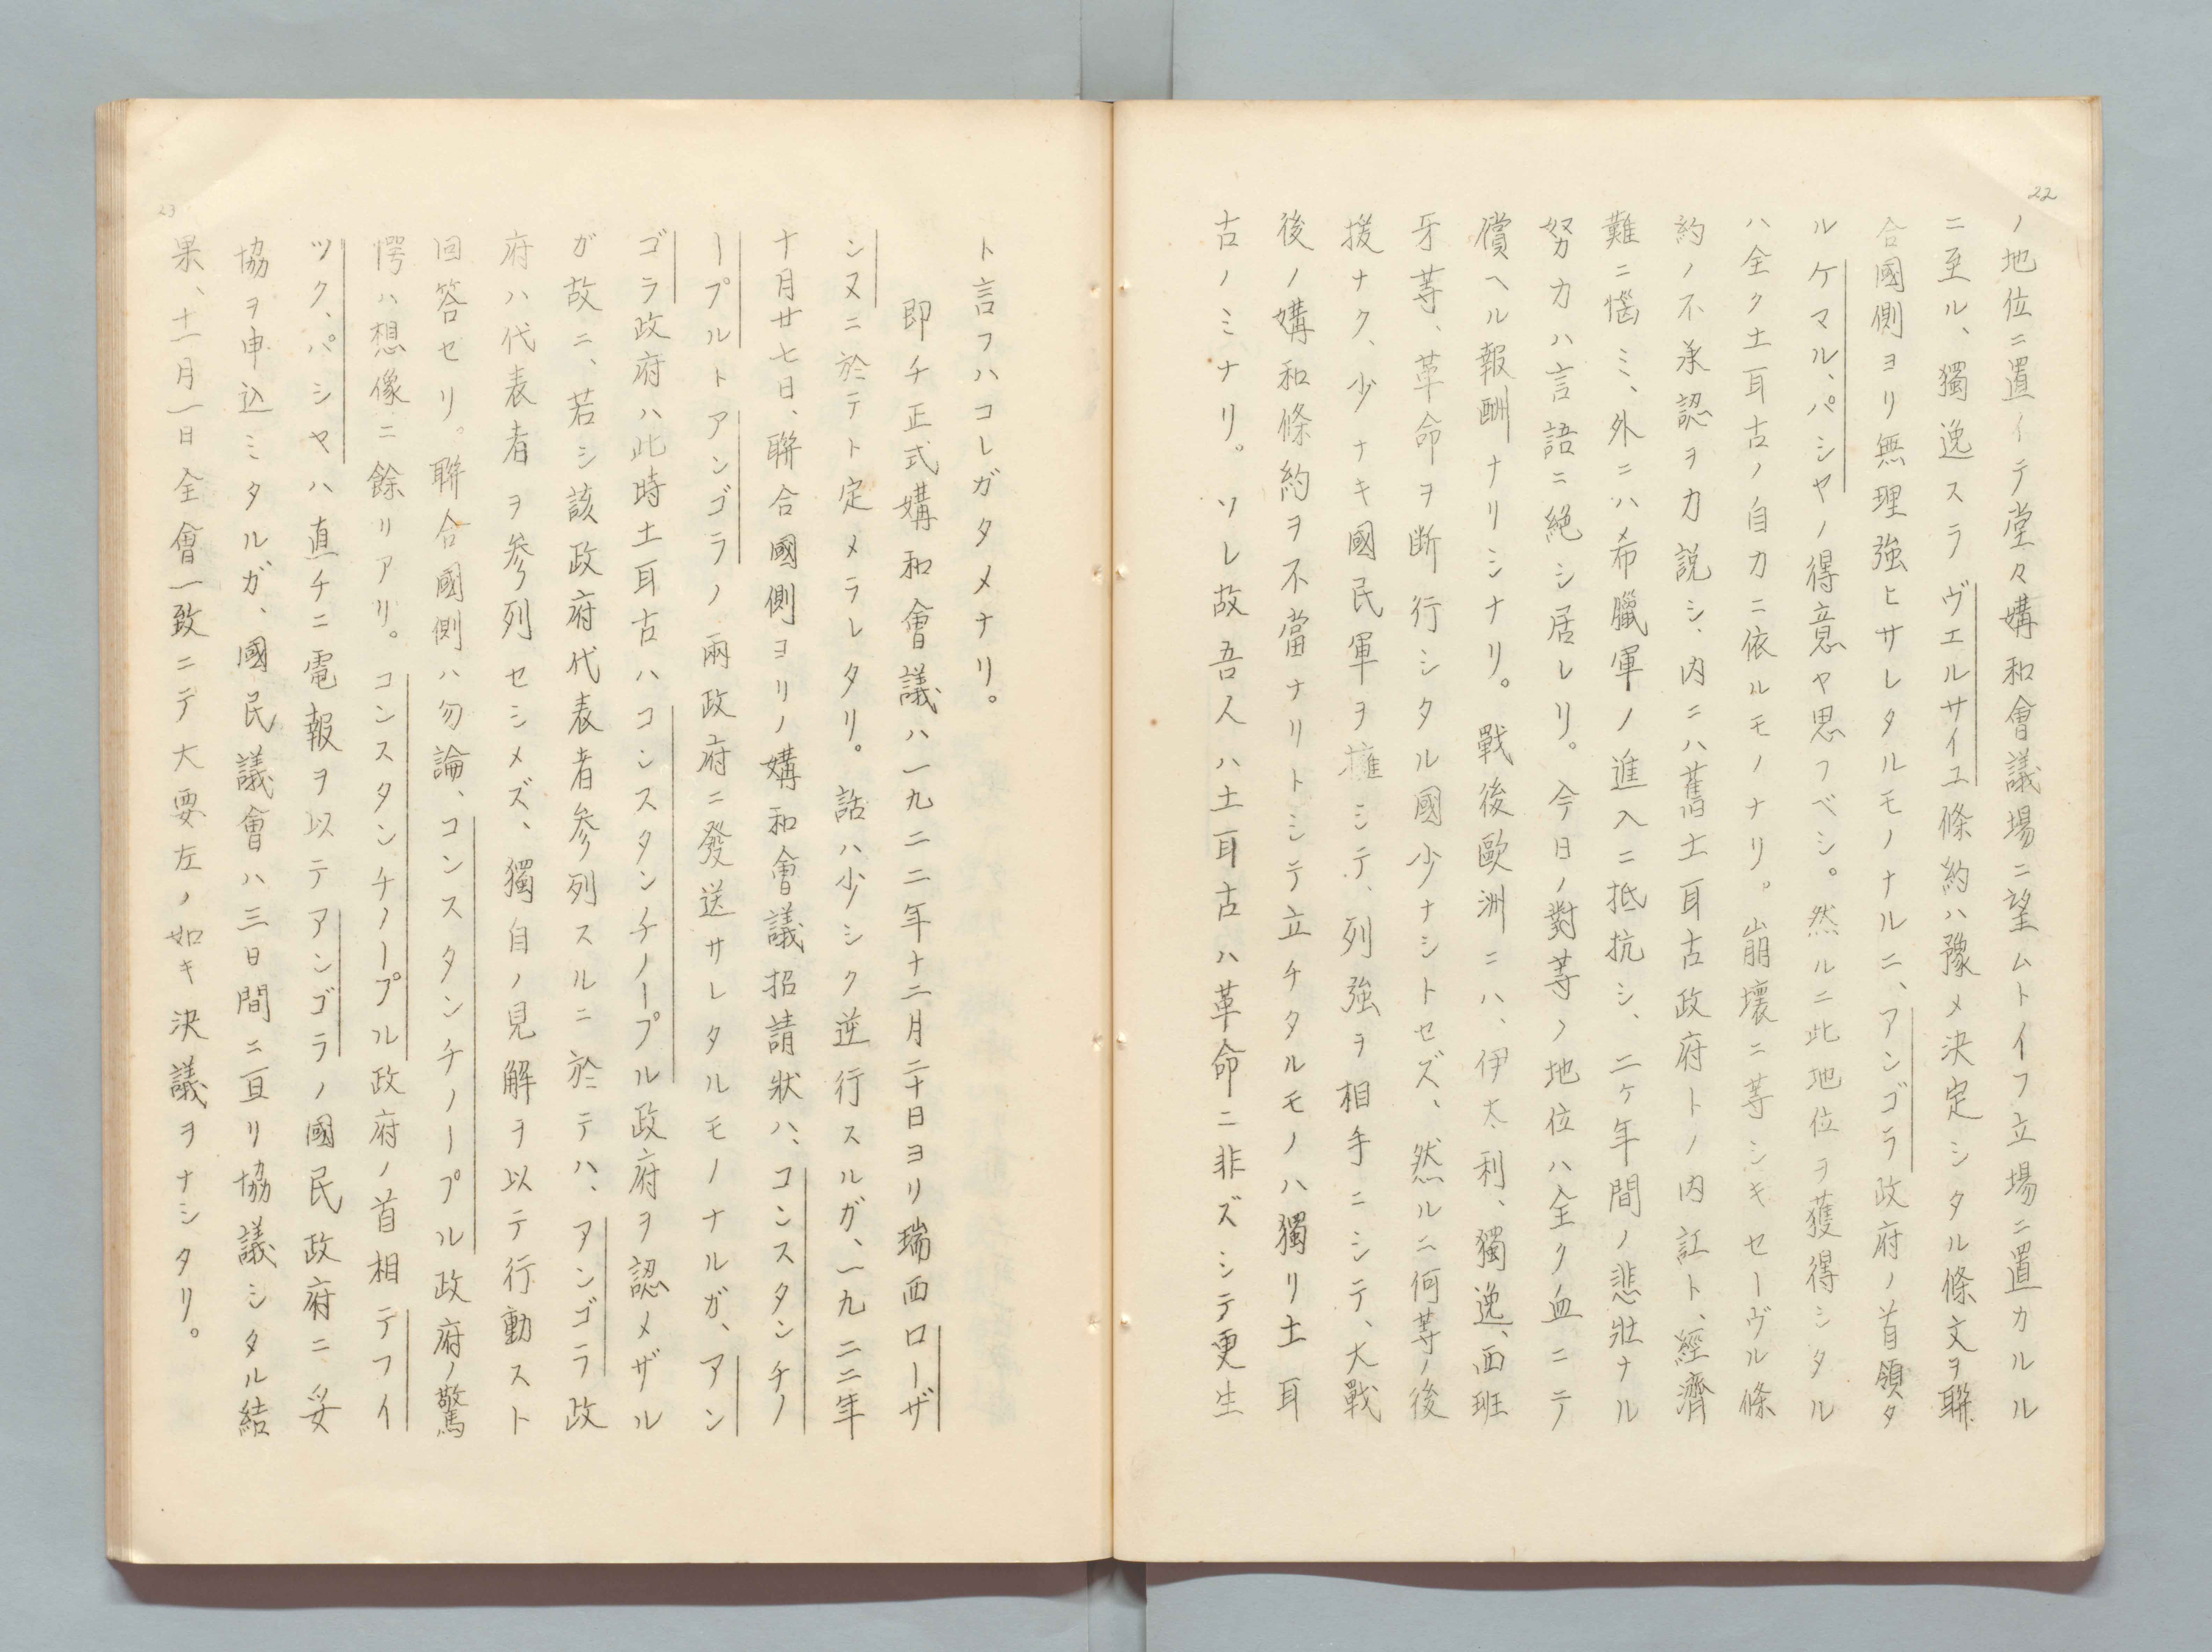 22
ノ地位ニ置イテ堂々媾和會議場ニ望ムトイフ立場ニ置カルル
ニ至ル、獨逸スラヴエルサイユ條約ハ豫メ決定シタル條文ヲ聯
合國側ヨリ無理強ヒサレタルモノナルニ、アンゴラ政府ノ首領タ
ルケマル、パシヤノ得意ヤ思フベシ。然ルニ此地位ヲ獲得シタル
ハ全ク土耳古ノ自力ニ依ルモノナリ。崩壊ニ等シキセーヴル條
約ノ不承認ヲ力説シ、内ニハ舊土耳古政府トノ内訌ト、經濟
難ニ惱ミ、外ニハ希臘軍ノ進入ニ抵抗シ、二ケ年間ノ悲壯ナル
努力ハ言語ニ絶シ居レリ。今日ノ對等ノ地位ハ全ク血ニテ
償ヘル報酬ナリシナリ。戰後歐洲ニハ、伊太利、獨逸、西班
牙等、革命ヲ断行シタル國少ナシトセズ、然ルニ何等ノ後
援ナク、少ナキ國民軍ヲ擁シテ、列強ヲ相手ニシテ、大戰
後ノ媾和條約ヲ不當ナリトシテ立チタルモノハ獨リ土耳
古ノミナリ。ソレ故吾人ハ土耳古ハ革命ニ非ズシテ更生
ト言フハコレガタメナリ。
即チ正式媾和會議ハ一九二二年十二月二十日ヨリ瑞西ローザ
ンヌニ於テト定メラレタリ。話ハ少シク逆行スルガ、一九二二年
十月廿七日、聯合國側ヨリノ媾和會議招請狀ハ、コンスタンチノ
ープルトアンゴラノ兩政府ニ發送サレタルモノナルガ、アン
ゴラ政府ハ此時土耳古ハコンスタンチノープル政府ヲ認メザル
ガ故ニ、若シ該政府代表者參列スルニ於テハ、アンゴラ政
府ハ代表者ヲ参列セシメズ、獨自ノ見解ヲ以テ行動スト
回答セリ。聯合國側ハ勿論、コンスタンチノープル政府ノ驚
愕ハ想像ニ餘リアリ。コンスタンチノープル政府ノ首相テフイ
ツク、パシヤハ直チニ電報ヲ以テアンゴラノ國民政府ニ妥
協ヲ申込ミタルガ、國民議會ハ三日間ニ亘リ協議シタル結
果、十一月一日全會一致ニテ大要左ノ如キ決議ヲナシタリ。
23